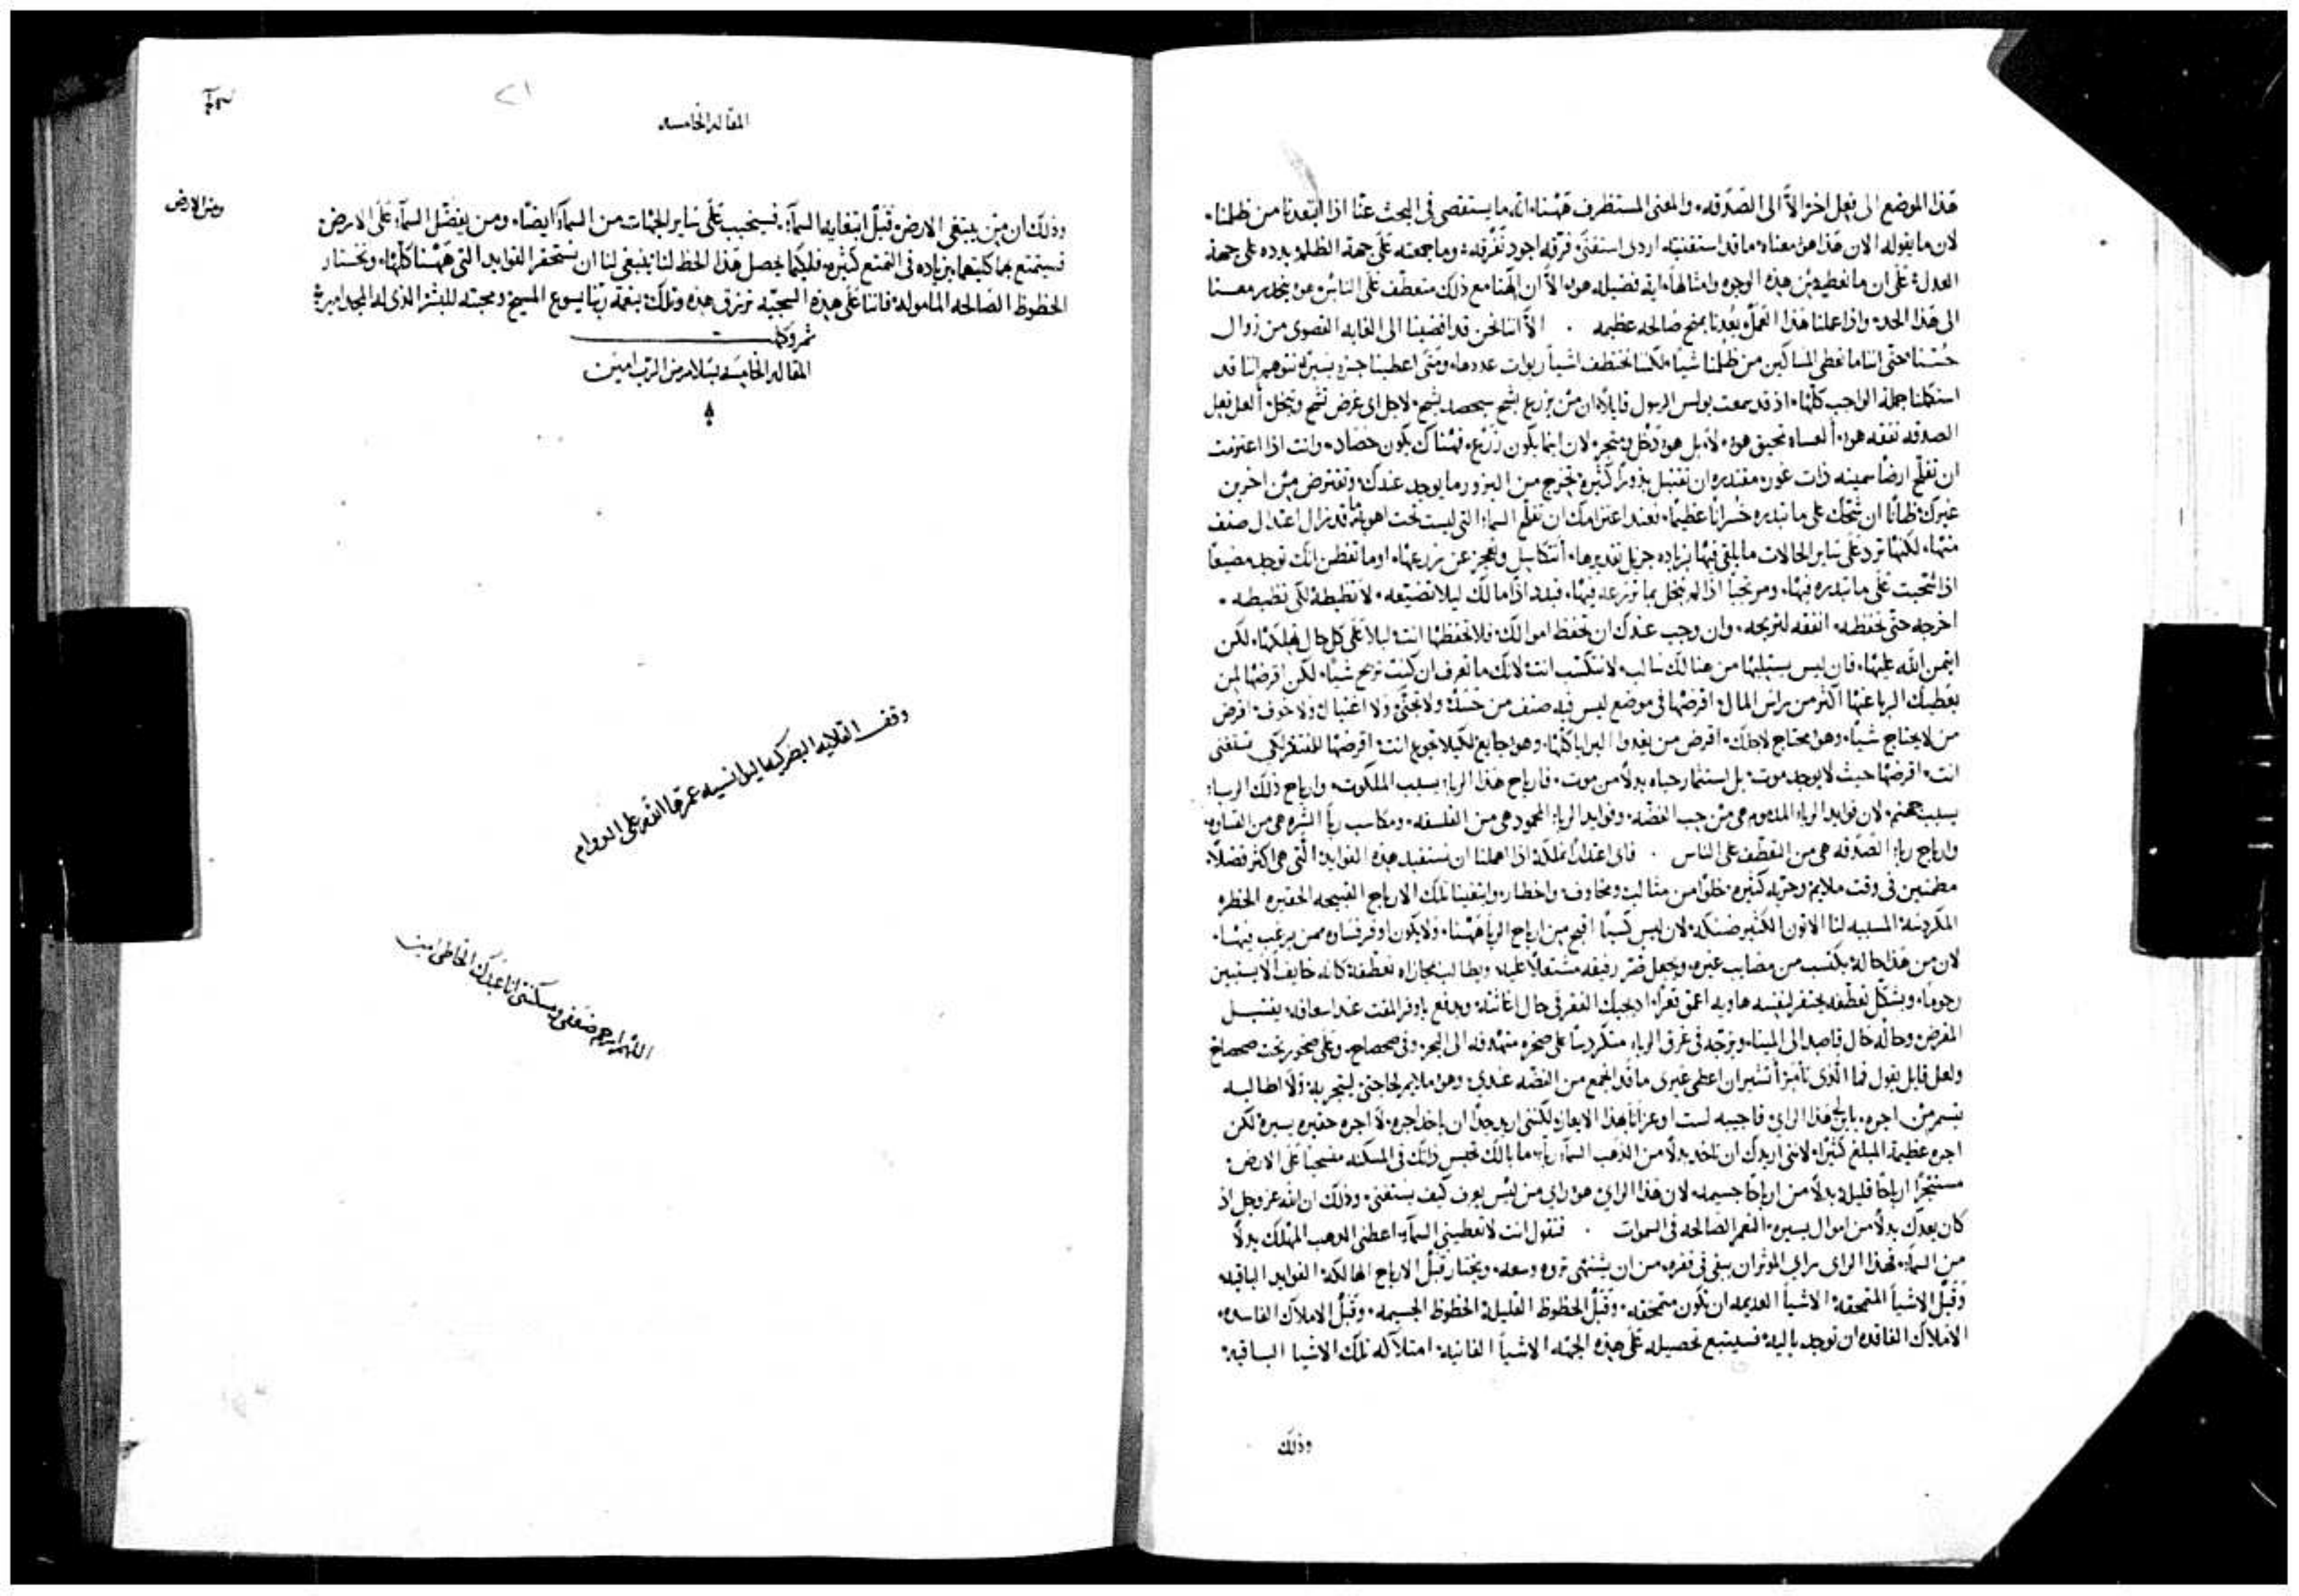 هذا الموضع الى فعل اخر الاَّ الى الصَدَقه، والمعنى المستظرف هَهُنا، انه ما يستقصى فى البحث عنَّا اذا ابتعدنا من ظلمنا.
لان ما يقوله الان هَذا هو معناه، ما قد استقنيته اردى استقنَى فرّقه اجود تَفْرقِه، وما جمعته عَلَى جهة الظلم، بدده على جهة
العدل، عَلَى ان ما نعطيه مِن هذه الوجوه وامثالها، اية فضيله هو، الاَّ ان الهَنا مع ذلك متعطّف عَلَى الناس، هو ينحدر معنا
الى هَذا الحد، واذا عملنا هَذا العَمل، يَعِدنا بمنح صَالحه عظيمه . الاَّ اننا نحن قد افضينا الى الغايه القصوى من زوال
حُسّنا، حتى اننا ما نعطى المساكين من ظلمنا شيًا، لكننا نختطف اشيآ ربوات عددها، ومَتى اعطينا جزء يسيرًا، نتوهم اننا قد
استكملنا جملة الواجب كلّها، اذ قد سمعت بولس الرسول قايلاً، ان مَن يزرع بشح سيحصد بشح، لاجل اى غرض تشح وتبخل، ألعل فعل
الصدقه نفقه هو، لا، بل هو دَخْل ومتجر، لان اينما يكون زَرْع، فهُناك يكون حَصَاد، وانت اذا اعتزمت
ان تفلّح ارضًا سمينه ذات غور، مقتدره ان تقتبل بذورًا كثيره، تخرج من البزور ما يوجد عندك، وتقترض مِن اخرين
غيرك، ظانًا ان شُحّك على ما تبدره خُسرانًا عَظيمًا، فعند اعتزامك ان تفلّح السمآ، التى ليست تحت اهويه
منها، لكنها ترد عَلَى ساير الحالات ما يلقى فيها بزياده جزيل تقديرها، أتتكاسل وتَعجز عن زرعها، اوما تفطن انك توجد مضيعًا
اذا شححت عَلَى ما تبدره فيها، ومرتجيًا اذا لم تبخل بما تزرعه فيها، فبدد اذًا مالك ليلا تضيّعه، لا تضبطه لكى تضبطه.
اخرجه حتى تحفظه، انفقه لتربحه، وان وجب عندك ان تحفظ اموالك، فلا تحفظها انت، ليلا عَلَى كل حال تهلكها، لكن
ايتمن الله عليها، فان ليس يستلبها من هنالك سَالب، لا تتكسّب انت، لانك ما تعرف ان كنت تربح شيًا، لكن اقرضها لمن
يعطيك الربا عنها اكثر من راس المال، اقرضها فى موضع ليس فيه صنف من حَسَد، ولا تجنّى، ولا اغتيال، ولا خوف، اقرض
من لا يحتاج شيًا، وهو محتاج لاجلك، اقرض من يغدوا البرايا كلها، وهو جايع لكيلا تجوع انت، اقرضها للمفتقر لكى تستغنى
انت، اقرضها حيث لا يوجد موت، بل استثمار حياه بدلاً من موت، فارباح هَذا الربا، بسبب الملكوت، وارباح ذلك الربا،
بسبب جهنم، لان فوايد الربا المذموم هى مِن حب الفضّه، وفوايد الربا المحمود هى من الفلسفه، ومكاسب ربآ الشره هى من القساوه،
وارباح ربا الصَدَقه هى من التعطّف على الناس . فاى اعتذار نملكه، اذا اهملنا ان نستفيد هذه الفوايد، التى هى اكثر فضلاً،
مطمَنين فى وقت ملايم، وحرّيه كثيره، خلوًا من مثالب ومخاوف واخطار، وابتغينا تلك الارباح القبيحه الحقيره الخطره
المكردسَة، المسببه لنا الاتون الكثير ضنكه، لان ليس كسبًا اقبح مِن ارباح الربا هَهُنا، ولا يكون اوفر قساوه ممن يرغب فيها.
لان من هَذا حاله، يكتسب من مصايب غيره، ويجعل فقر رفيقه مشتغلاً عليه، ويطالب بمجازاه تعطّفه، كانه خايف الاَّ يستبين
رحومًا، وبشكل تعطّفه يحتفر لنفسه هاويه اعمق قعرًا، اذ يحبك الفقر فى حال اغاثته، ويدفع باوفر المقت عند اسعافه، يقتبل
المقرض وحاله حال قاصد الى الميناء، ويزجّه فى غرق الرباء
ولعل قايل يقول فما الَذى تامر، أتشير ان اعطى غيرى ما قد اجتمع من الفضّه عندى، وهو ملايم لحاجتى ليتجر به، ولا اطالبه
هَذا الراى، فاجيبه لست اوعز انا هذا الايعاز، لكننى اريد جدًا ان ياخذ اجره، لا اجره حقيره يسيره، لكن
اجره عظيمة المبلغ كثيرًا، لاننى اريدك ان تاخذ بدلاً من الذهب السمآ ربآ، ما بالك تحبس ذاتك فى المسكنه منسحبًا عَلَى الارض،
مستنجزًا ارباحًا قليله، بدلاً من ارباحًا جسيمه، لان هَذا الراى هو راى من ليس يعرف كيف يستغنى، وذلك ان الله عز وجل اذ
كان يعدك بدلاً من اموال يسيره، النعم الصَالحه فى السموات . فتقول انت لا تعطينى السمآ، اعطنى الدهب المهلك بدلاً
من السمآ، فهذا الراى راى الموثر ان يبقى فى فقره، من ان يشتهى ثروه وسعه، ويختار قبل الارباح الهالكة، الفوايد الباقيه،
وقَبل الاشيآ المتمحقه، الاشيآ العديمه ان تكون متمحقه، وقَبل الحظوظ القليله، الحظوظ الجسيمه، وقَبل الاملاك الفاسده،
الاملاك الفاقده ان توجد باليه، فسيتبع تحصيله عَلَى هذه الجهه الاشيآ الفانيه، امتلآكه تلك الاشيا الباقيه،
وذلك
المقاله الخامسه
وذلك ان مَن يبتغى الارض قَبل ابتغايه السمآ، فسيخيب عَلَى ساير الجهات من السمآ ايضًا، ومن يفضّل السمآ، عَلَى الارض،
فسيتمتع بهما كلتيهما بزياده فى التمتع كثيره، فلكيما يحصل هَذا الحظ لنا، ينبغى لنا ان نستحقر الفوايد التى هَهُنا كلّها، ونختار
الحظوظ الصَالحه المامولة، فاننا عَلَى هذه السجيّه نرزق هذه وتلك، بنعمة ربّنا يسوع المسيح ومحبته للبشر الذى له المجد امين
ومن الارض
المقاله الخامسه بسَلام من الرب امين
وقف القلايه البطريركيه عمرها الله على الدوام
اللهم ارحم ضعفى ومسكنتى انا عبدك الخاطى امين